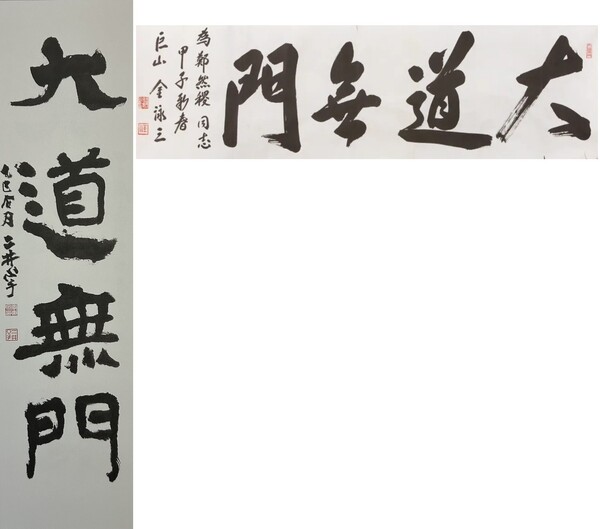 大道無門
大道無門
為鄭然稷同志
甲子新春
巨山 金泳三